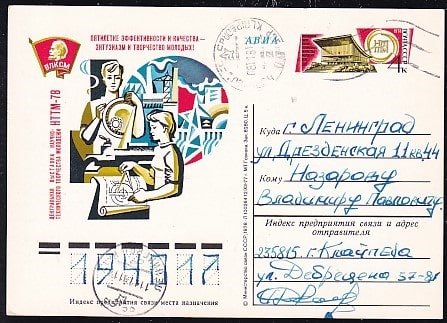 ПЯТИЛЕТКЕ ЭФФЕКТИВНОСТИ И КАЧЕСТВА—
ЭНТУЗИАЗМ И ТВОРЧЕСТВО МОЛОДЫХ!
ВЛКСМ
ЦЕНТРАЛЬНАЯ ВЫСТАВКА НАУЧНО-
ТЕХНИЧЕСКОГО ТВОРЧЕСТВА МОЛОДЕЖИ
НТТМ-78
АВИА
НТТМ
4к
Куда г. Ленинград
ул. Дрезденская 11 кв 44
Кому Назарову
Владимиру Павловичу
Индекс предприятия связи и адрес
отправителя
235815 г. Клайпеда
ул. Дебрецена 37-81
194017
Индекс предприятия связи места назначения
© Министерство связи СССР, 1978